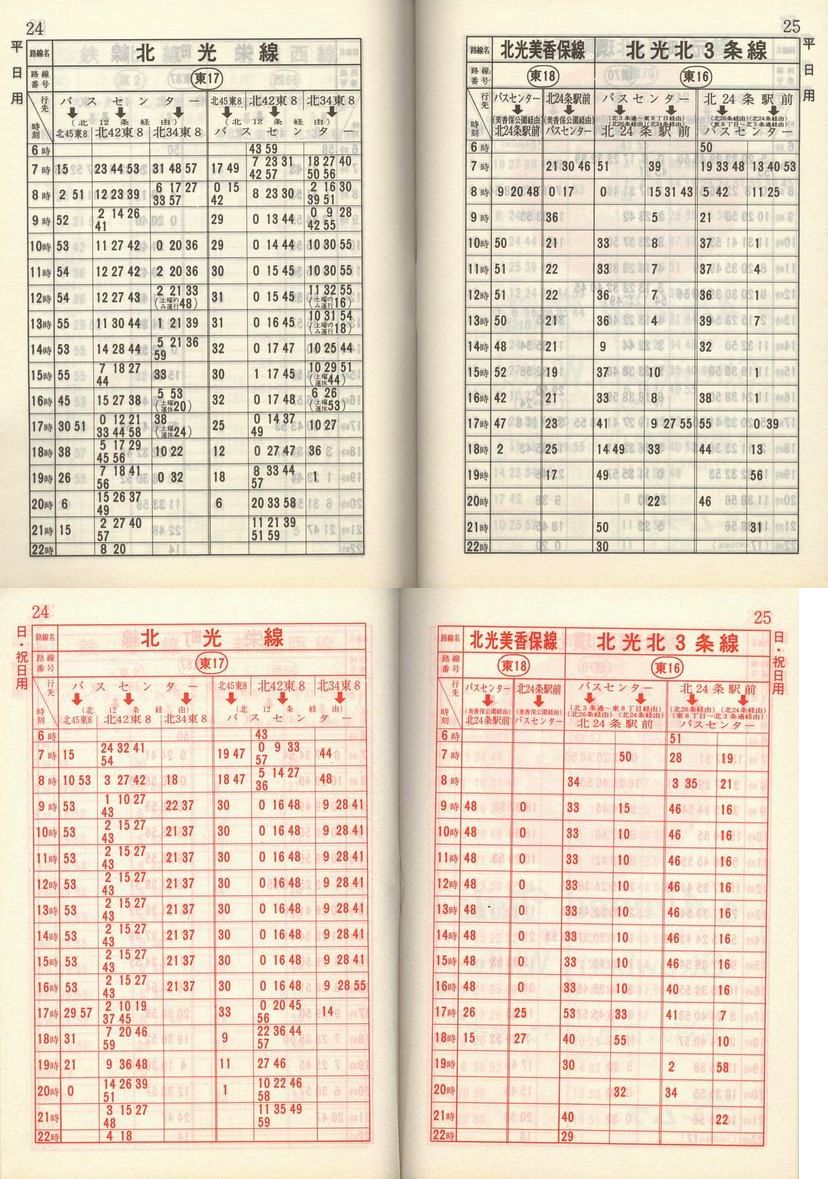 24
平日用
路線名 北光線
路線番号 東17
行先 バスセンター 北45東8 北42東8 北34東8
(北12条経由) (北12条経由)
時刻 北45東8 北42東8 北34東8 バスセンター
6時 43 59
7時 15 23 44 53 31 48 57 17 49 7 23 31 42 57 18 27 40 50 56
8時 2 51 12 23 39 6 17 27 33 57 0 15 42 8 23 30 2 16 30 39 51
9時 52 2 14 26 41 29 0 13 44 0 9 28 42 55
10時 53 11 27 42 0 20 36 29 0 14 44 10 30 55
11時 54 12 27 42 2 20 36 30 0 15 45 10 30 55
12時 54 12 27 43 2 21 33 (土曜のみ運行48) 31 0 15 45 11 32 55 (土曜のみ運行16)
13時 55 11 30 44 1 21 39 31 0 16 45 10 31 54 (土曜のみ運行18)
14時 53 14 28 44 5 21 36 59 32 0 17 47 10 25 44
15時 55 7 18 27 44 33 30 1 17 45 10 29 51 (土曜運休44)
16時 45 15 27 38 5 53 (土曜運休20) 32 0 17 48 6 26 (土曜運休53)
17時 30 51 0 12 21 33 44 58 38 (土曜運休24) 25 0 14 37 49 10 27
18時 38 5 17 29 45 56 10 22 12 0 27 47 36
19時 26 7 18 41 56 0 32 18 8 33 44 57 1
20時 6 15 26 37 49 6 20 33 58
21時 15 2 27 40 57 11 21 39 51 59
22時 8 20
25
平日用
路線名 北光美香保線 北光北3条線
路線番号 東18 東16
行先 バスセンター 北24条駅前 バスセンター 北24条駅前
(美香保公園経由) (美香保公園経由) (北3条通~東8丁目経由) (北26条経由) (北24条経由) (北26条経由) (北24条経由) (東8丁目~北3条通経由)
時刻 北24条駅前 バスセンター 北24条駅前 バスセンター
6時 50
7時 21 30 46 51 39 19 33 48 13 40 53
8時 9 20 48 0 17 0 7 31 40 15 31 43 5 42 11 25
9時 36 5 21
10時 50 21 33 8 37 1
11時 51 22 33 7 37 4
12時 51 22 36 7 36 1
13時 50 21 36 4 39 7
14時 48 21 9 32
15時 52 19 37 10 1
16時 42 21 33 8 38 1
17時 47 23 41 9 27 55 55 0 39
18時 2 25 14 49 33 44 13
19時 17 49 56
20時 22 46
21時 50 31
22時 30
24
日・祝日用
路線名 北光線
路線番号 東17
行先 バスセンター 北45東8 北42東8 北34東8
(北12条経由) (北12条経由)
時刻 北45東8 北42東8 北34東8 バスセンター
6時 43
7時 15 24 32 41 54 19 47 0 9 33 57 44
8時 10 53 3 27 42 18 18 47 5 14 27 36 48
9時 53 1 10 27 43 22 37 30 0 16 48 9 28 41
10時 53 2 15 27 43 21 37 30 0 16 48 9 28 41
11時 53 2 15 27 43 21 37 30 0 16 48 9 28 41
12時 53 2 15 27 43 21 37 30 0 16 48 9 28 41
13時 53 2 15 27 43 21 37 30 0 16 48 9 28 41
14時 53 2 15 27 43 21 37 30 0 16 48 9 28 41
15時 53 2 15 27 43 21 37 30 0 16 48 9 28 41
16時 53 2 15 27 43 21 37 30 0 16 48 9 28 55
17時 29 57 2 10 19 37 45 33 0 20 45 56 14
18時 31 7 20 46 59 9 22 36 44 57
19時 21 9 36 48 11 27 46
20時 0 14 26 39 51 1 10 22 46 58
21時 3 15 27 48 11 35 49 59
22時 4 18
25
日・祝日用
路線名 北光美香保線 北光北3条線
路線番号 東18 東16
行先 バスセンター 北24条駅前 バスセンター 北24条駅前
(美香保公園経由) (美香保公園経由) (北3条通~東8丁目経由) (北26条経由) (北24条経由) (北26条経由) (北24条経由) (東8丁目~北3条通経由)
時刻 北24条駅前 バスセンター 北24条駅前 バスセンター
6時 51
7時 50 28 19
8時 34 3 35 21
9時 48 0 33 15 46 16
10時 48 0 33 10 46 16
11時 48 0 33 10 46 16
12時 48 0 33 10 46 16
13時 48 0 33 10 46 16
14時 48 0 33 10 46 16
15時 48 0 33 10 46 16
16時 48 0 33 10 40 16
17時 26 25 53 33 41 7
18時 15 27 40 55 10
19時 30 2 58
20時 32 34
21時 40 22
22時 29